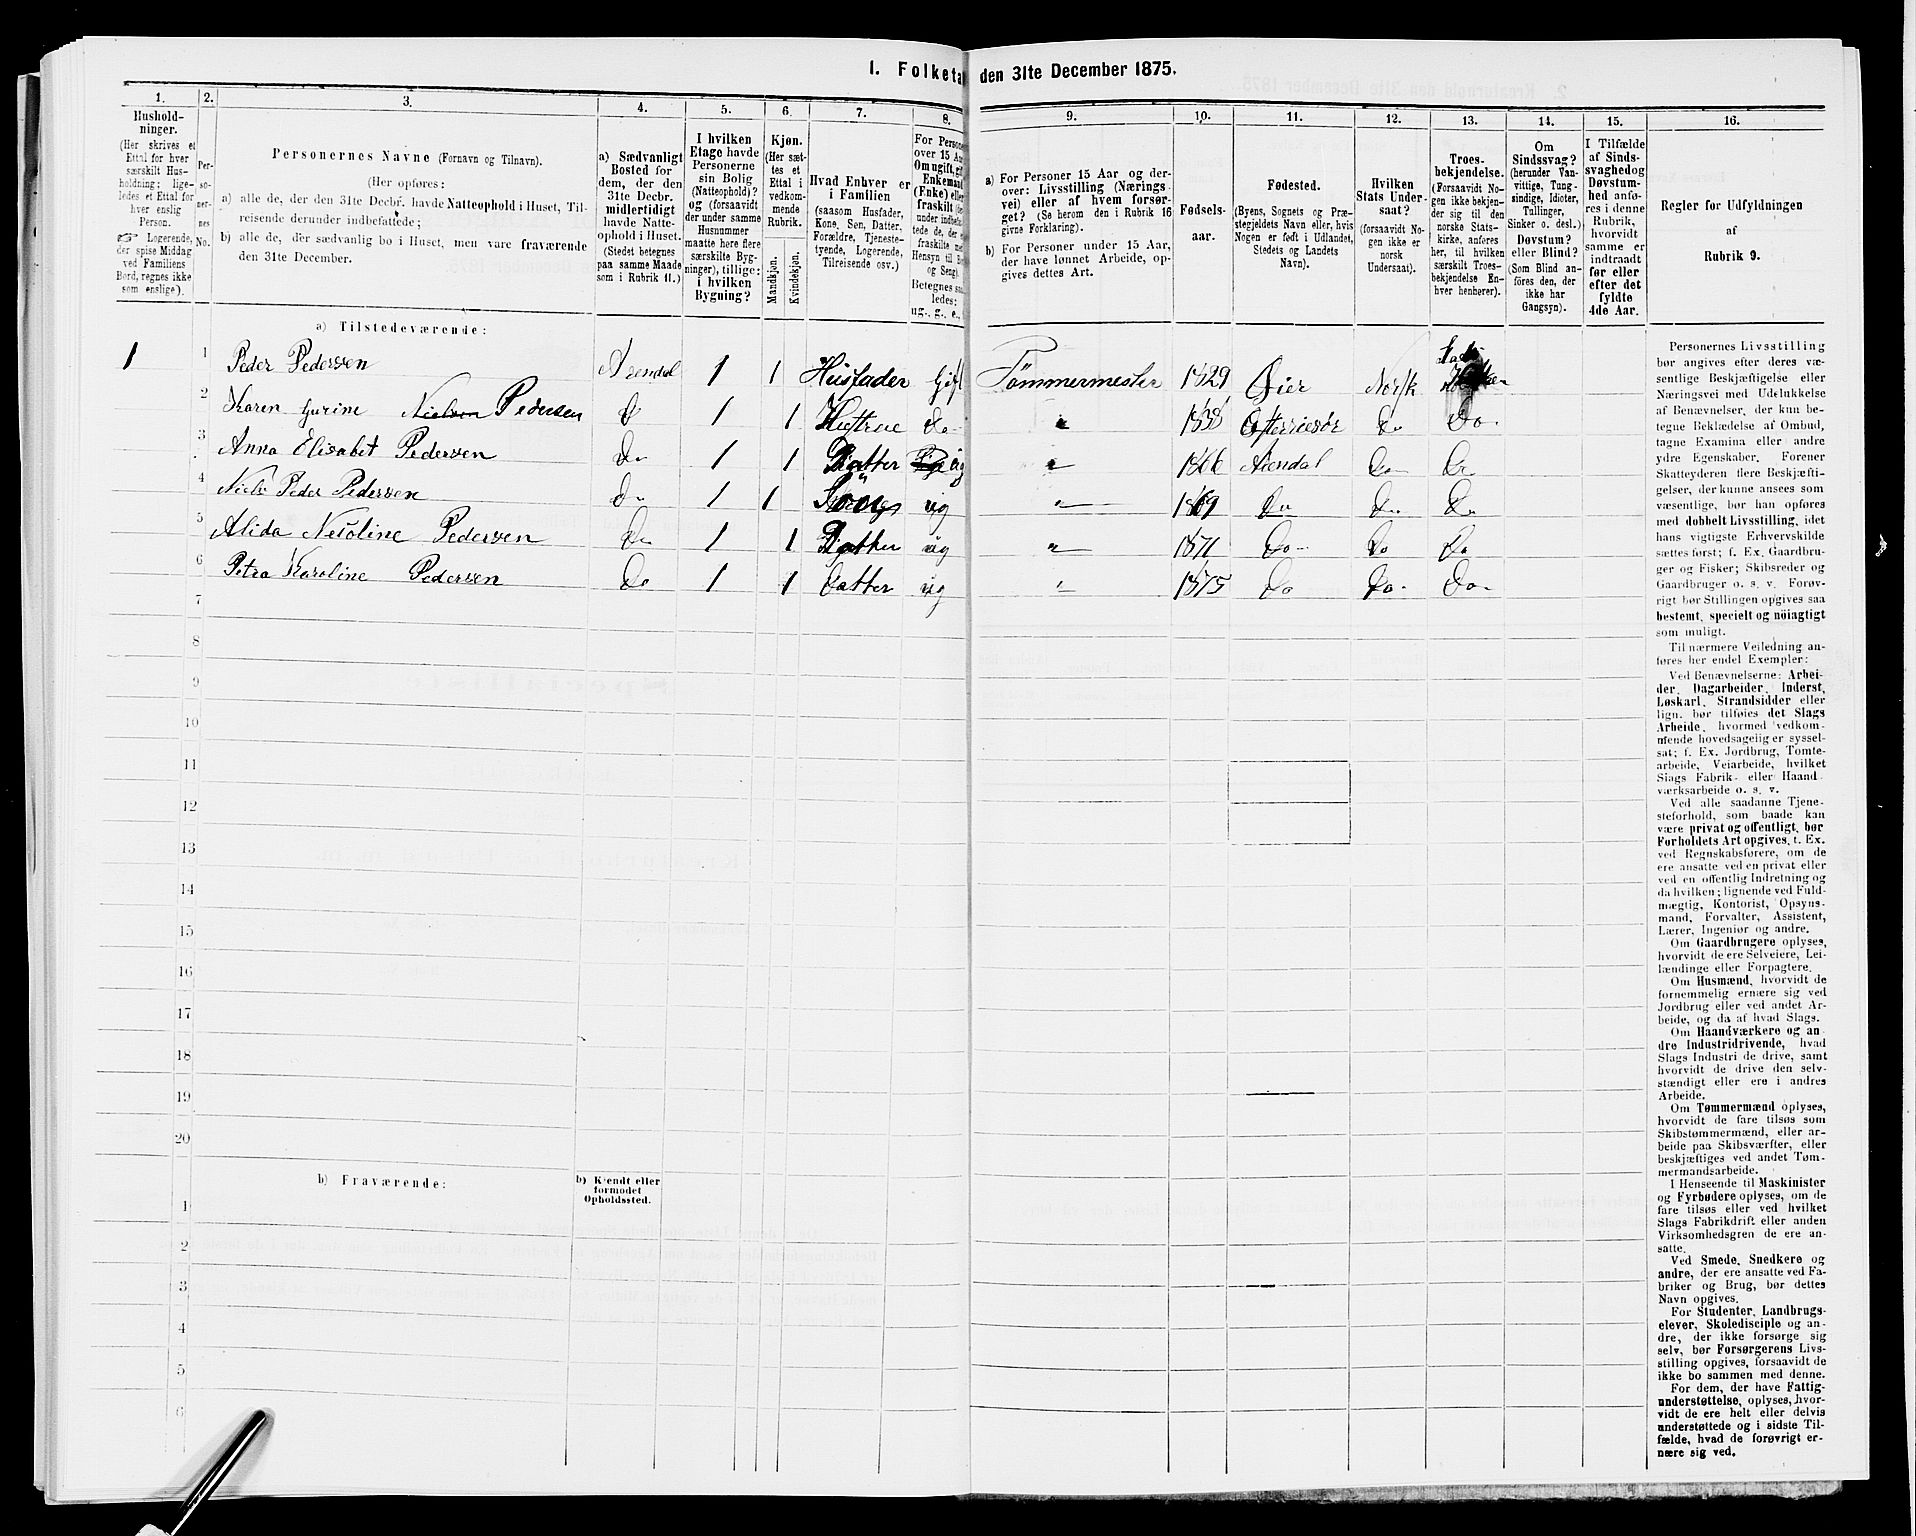 I. Folketa den 31te December 1875.
1.
Hushold-
ninger.
(Her skrives et
Ettal for hver
særskilt Hus-
holdning; lige-
ledes et Ettal for
hver enslig
Person.
☞ Logerende,
der spise Middag
ved Familiens
Bord, regnes ikke
som enslige).
2.
Per-
so-
ner-
nes
No.
3.
Personernes Navne (Fornavn og Tilnavn).
(Her opføres:
a) alle de, der den 31te Decbr. havde Natteophold i Huset, Til-
reisende derunder indbefattede;
b) alle de, der sædvanlig bo i Huset, men vare fraværende
den 31te December.
4.
a) Sædvanligt
Bosted for
dem, der den
31te Decbr.
midlertidigt
havde Natte-
ophold i Huset.
(Stedet betegnes
paa samme Maade
som i Rubrik 11.)
5.
I hvilken
Etage havde
Personerne
sin Bolig
(Natteophold)?
og (forsaavidt
der under samme
Husnummer
maatte høre flere
særskilte Byg-
ninger), tillige:
i hvilken
Bygning?
6.
Kjøn.
(Her sæt-
tes et
Ettal i
vedkom-
mende
Rubrik.
Mandkjøn.
Kvindekjøn.
7.
Hvad Enhver er
i Familien
(saasom Husfader,
Kone, Søn, Datter,
Forældre, Tjeneste-
tyende, Logerende,
Tilreisende osv.)
8.
For Person
over 15 Aa
Om ugift, gif
Enkemand
(Enke) elle
fraskilt (he
under indbefat-
tede de, der e
fraskilte med
Hensyn til Bo
og Seng).
Betegnes saa
ledes:
ug., g., e.,
9.
a) For Personer 15 Aar og der-
over: Livsstilling (Nærings-
vei) eller af hvem forsør-
get? (Se herom den i Rubrik 16
givne Forklaring).
b) For Personer under 15 Aar,
der have lønnet Arbeide, op-
gives dettes Art.
10.
Fødsels-
aar.
11.
Fødested.
(Byens, Sognets og Præ-
stegjeldets Navn eller, hvis
Nogen er født i Udlandet,
Stedets og Landets
Navn).
12.
Hvilken
Stats Under-
saat?
(forsaavidt No-
gen ikke er
norsk
Undersaat).
13.
Troes-
bekjendelse.
(Forsaavidt No-
gen ikke bekjen-
der sig til den
norske Stats-
kirke, anføres
her, til hvilken
særskilt Troes-
bekjendelse En-
hver henhører).
14.
Om
Sindssvag?
(herunder Van-
vittige, Tung-
sindige, Idioter,
Tullinger,
Sinker o. desl.)
Døvstum?
eller Blind?
(Som Blind an-
føres den, der
ikke har
Gangsyn).
15.
I Tilfælde
af Sinds-
svaghed og
Døvstum-
hed anfø-
res i denne
Rubrik,
hvorvidt
samme er
indtraadt
før eller
efter det
fyldte
4de Aar.
16.
Regler for Udfyldningen
af
Rubrik 9.
a) Tilstedeværende:
1 1 Peder Pedersen Arendal 1 1 Husfader Gift Tømmermester 1829 Øier Norsk
2 Karen Gurine Nielsen Pedersen Do 1 1 Hustrue Do " 1838 Østerrisør Do Do
3 Anna Elisabet Pedersen Do 1 1 Datter ug " 1866 Arendal Do Do
4 Niels Peder Pedersen Do 1 1 Søn ug " 1869 Do Do Do
5 Alida Nicoline Pedersen Do 1 1 Datter ug " 1871 Do Do Do
6 Petra Karoline Pedersen Do 1 1 Datter ug " 1875 Do Do Do
7
8
9
10
11
12
13
14
15
16
17
18
19
20
b) Fraværende:
b) Kjendt eller
formodet
Opholdssted.
1
2
3
4
5
6
Personernes Livsstilling
bør angives efter deres væ-
sentlige Beskjæftigelse eller
Næringsvei med Udelukkelse
af Benævnelser, der kun be-
tegne Beklædelse af Ombud,
tagne Examina eller andre
ydre Egenskaber. Forener
Skatteyderen flere Beskjæfti-
gelser, der kunne ansees som
væsentlige, bør han opføres
med dobbelt Livsstilling, idet
hans vigtigste Erhvervskilde
sættes først; f. Ex. Gaardbru-
ger og Fisker; Skibsreder og
Gaardbruger o. s. v. Forøv-
rigt bør Stillingen opgives saa
bestemt, specielt og nöiagtigt
som muligt.
Til nærmere Veiledning an-
føres her endel Exempler:
Ved Benævnelserne: Arbei-
der, Dagarbeider, Inderst,
Løskarl, Strandsidder eller
lign. bør tilføies det Slags
Arbeide, hvormed vedkom-
mende hovedsagelig er syssel-
sat; f. Ex. Jordbrug, Tomte-
arbeide, Veiarbeide, hvilket
Slags Fabrik- eller Haand-
værksarbeide o. s. v.
Ved alle saadanne Tjene-
steforhold, som baade kan
være privat og offentligt, bør
Forholdets Art opgives, t. Ex.
ved Regnskabsførere, om de
ere ansatte ved en privat eller
ved en offentlig Indretning og
da hvilken; lignende ved Fuld-
mægtig, Kontorist, Opsyns-
mand, Forvalter, Assistent,
Lærer, Ingeniør og andre.
Om Gaardbrugere oplyses,
hvorvidt de ere Selveiere, Lei-
lændinge eller Forpagtere.
Om Husmænd, hvorvidt de
fornemmelig ernære sig ved
Jordbrug eller ved andet Ar-
beide, og da af hvad Slags.
Om Haandværkere og an-
dre Industridrivende, hvad
Slags Industri de drive, samt
hvorvidt de drive den selv-
stændigt eller ere i andres
Arbeide.
Om Tømmermænd oplyses,
hvorvidt de fare tilsøs som
Skibstømmermænd, eller ar-
beide paa Skibsværfter, eller
beskjæftiges ved andet Tøm-
mermandsarbeide.
I Henseende til Maskinister
og Fyrbødere oplyses, om de
fare tilsøs eller ved hvilket
Slags Fabrikdrift eller anden
Virksomhedsgren de ere an-
satte.
Ved Smede, Snedkere og
andre, der ere ansatte ved Fa-
briker og Brug, bør dettes
Navn opgives.
For Studenter, Landbrugs-
elever, Skoledisciple og an-
dre, der ikke forsørge sig
selv, bør Forsørgerens Livs-
stilling opgives, forsaavidt de
ikke bo sammen med denne.
For dem, der have Fattig-
understøttelse, oplyses, hvor-
vidt de ere helt eller delvis
understøttede og i sidste Til-
fælde, hvad de forøvrigt er-
nære sig ved.